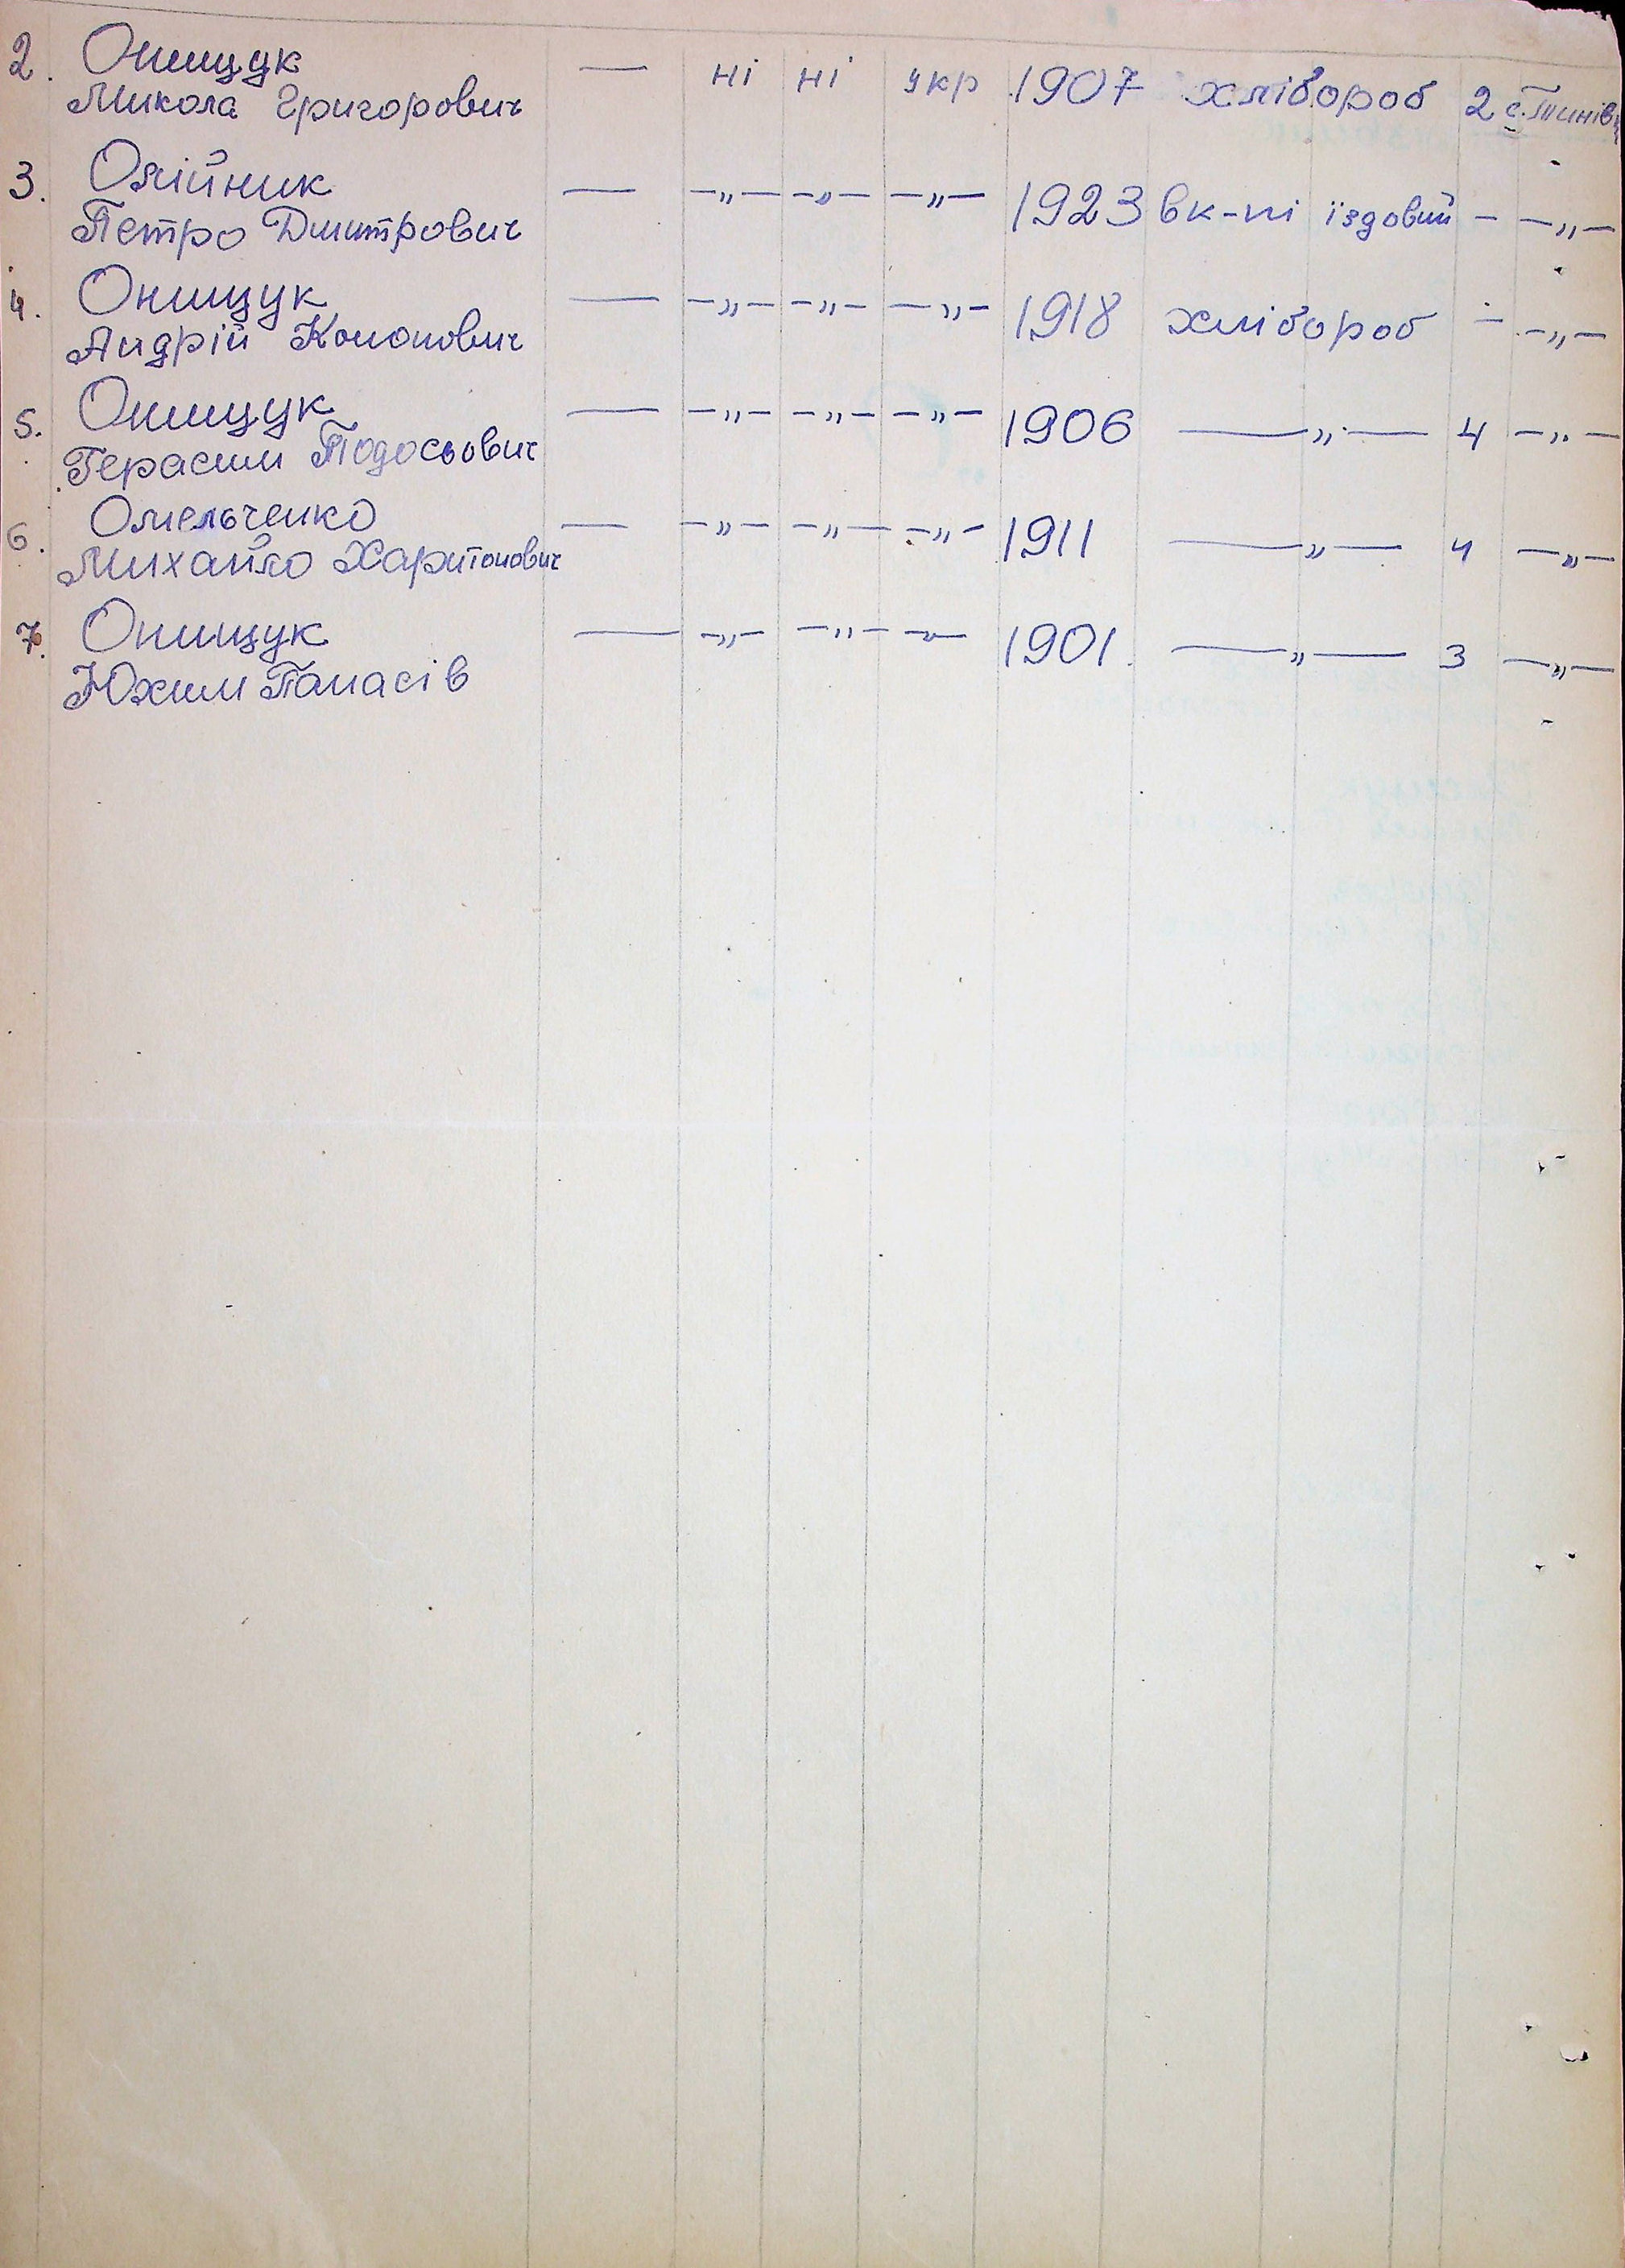 2. Онищук — ні ні укр 1907 хлібороб 2 с.Тинів
Микола Григорович
3. Олійник — —„— —„— —„— 1923 вк-ні їздовий — —„—
Петро Дмитрович
4. Онищук — —„— —„— —„— 1918 хлібороб — —„—
Андрій Кононович
5. Онищук — —„— —„— —„— 1906 —„— 4 —„—
Герасим Тодосьович
6. Омельченко — —„— —„— —„— 1911 —„— 4 —„—
Михайло Харитонович
7. Онищук — —„— —„— —„— 1901 —„— 3 —„—
Юхим Панасів